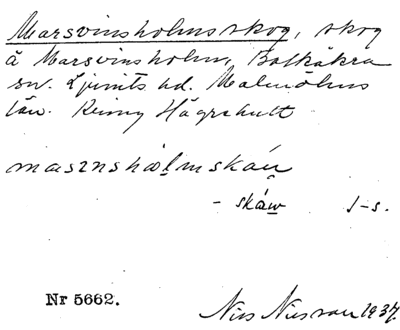 Marsvinsholms skog, skog
å Marsvinsholm, Balkåkra
sn. Ljunits hd. Malmöhus
län. Reiny Hägrahult
- skáw 1-s.
Nr 5662.
Nils Nilsson 1937.